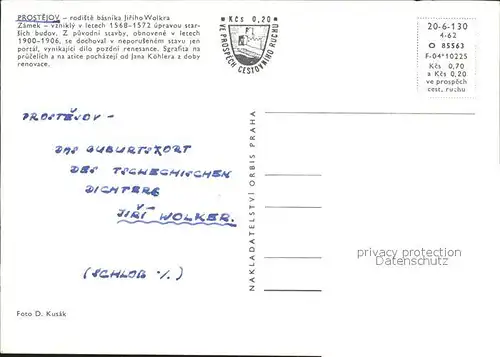 PROSTĚJOV – rodiště básníka Jiřího Wolkra
Zámek – vzniklý v letech 1568–1572 úpravou star-
ších budov. Z původní stavby, obnovené v letech
1900–1906, se dochoval v neporušeném stavu jen
portál, vynikající dílo pozdní renesance. Sgrafita na
průčelích a na atice pocházejí od Jana Köhlera a doby
renovace.
Kčs 0,20
VE PROSPĚCH CESTOVNÍHO RUCHU
20-6-130
4-62
O 85563
F-04*10225
Kčs 0,70
a Kčs 0,20
ve prospěch
cest. ruchu
PROSTĚJOV –
DAS GUBURTSORT
DES TSCHECHISCHEN
DICHTERS
JIŘÍ WOLKER.
(SCHLOß ./.)
NAKLADATELSTVÍ ORBIS PRAHA
privacy protection
Datenschutz
Foto D. Kusák